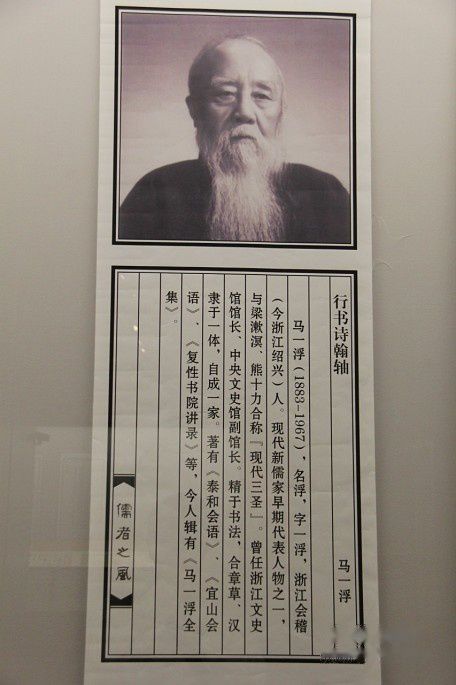 行书诗翰轴
马一浮
马一浮（1883-1967），名浮，字一浮，浙江会稽
（今浙江绍兴）人。现代新儒家早期代表人物之一，
与梁漱溟、熊十力合称『现代三圣』。曾任浙江文史
馆馆长、中央文史馆副馆长。精于书法，合章草、汉
隶于一体，自成一家。著有《泰和会语》、《宜山会
语》、《复性书院讲录》等，今人辑有《马一浮全
集》。
儒者之风